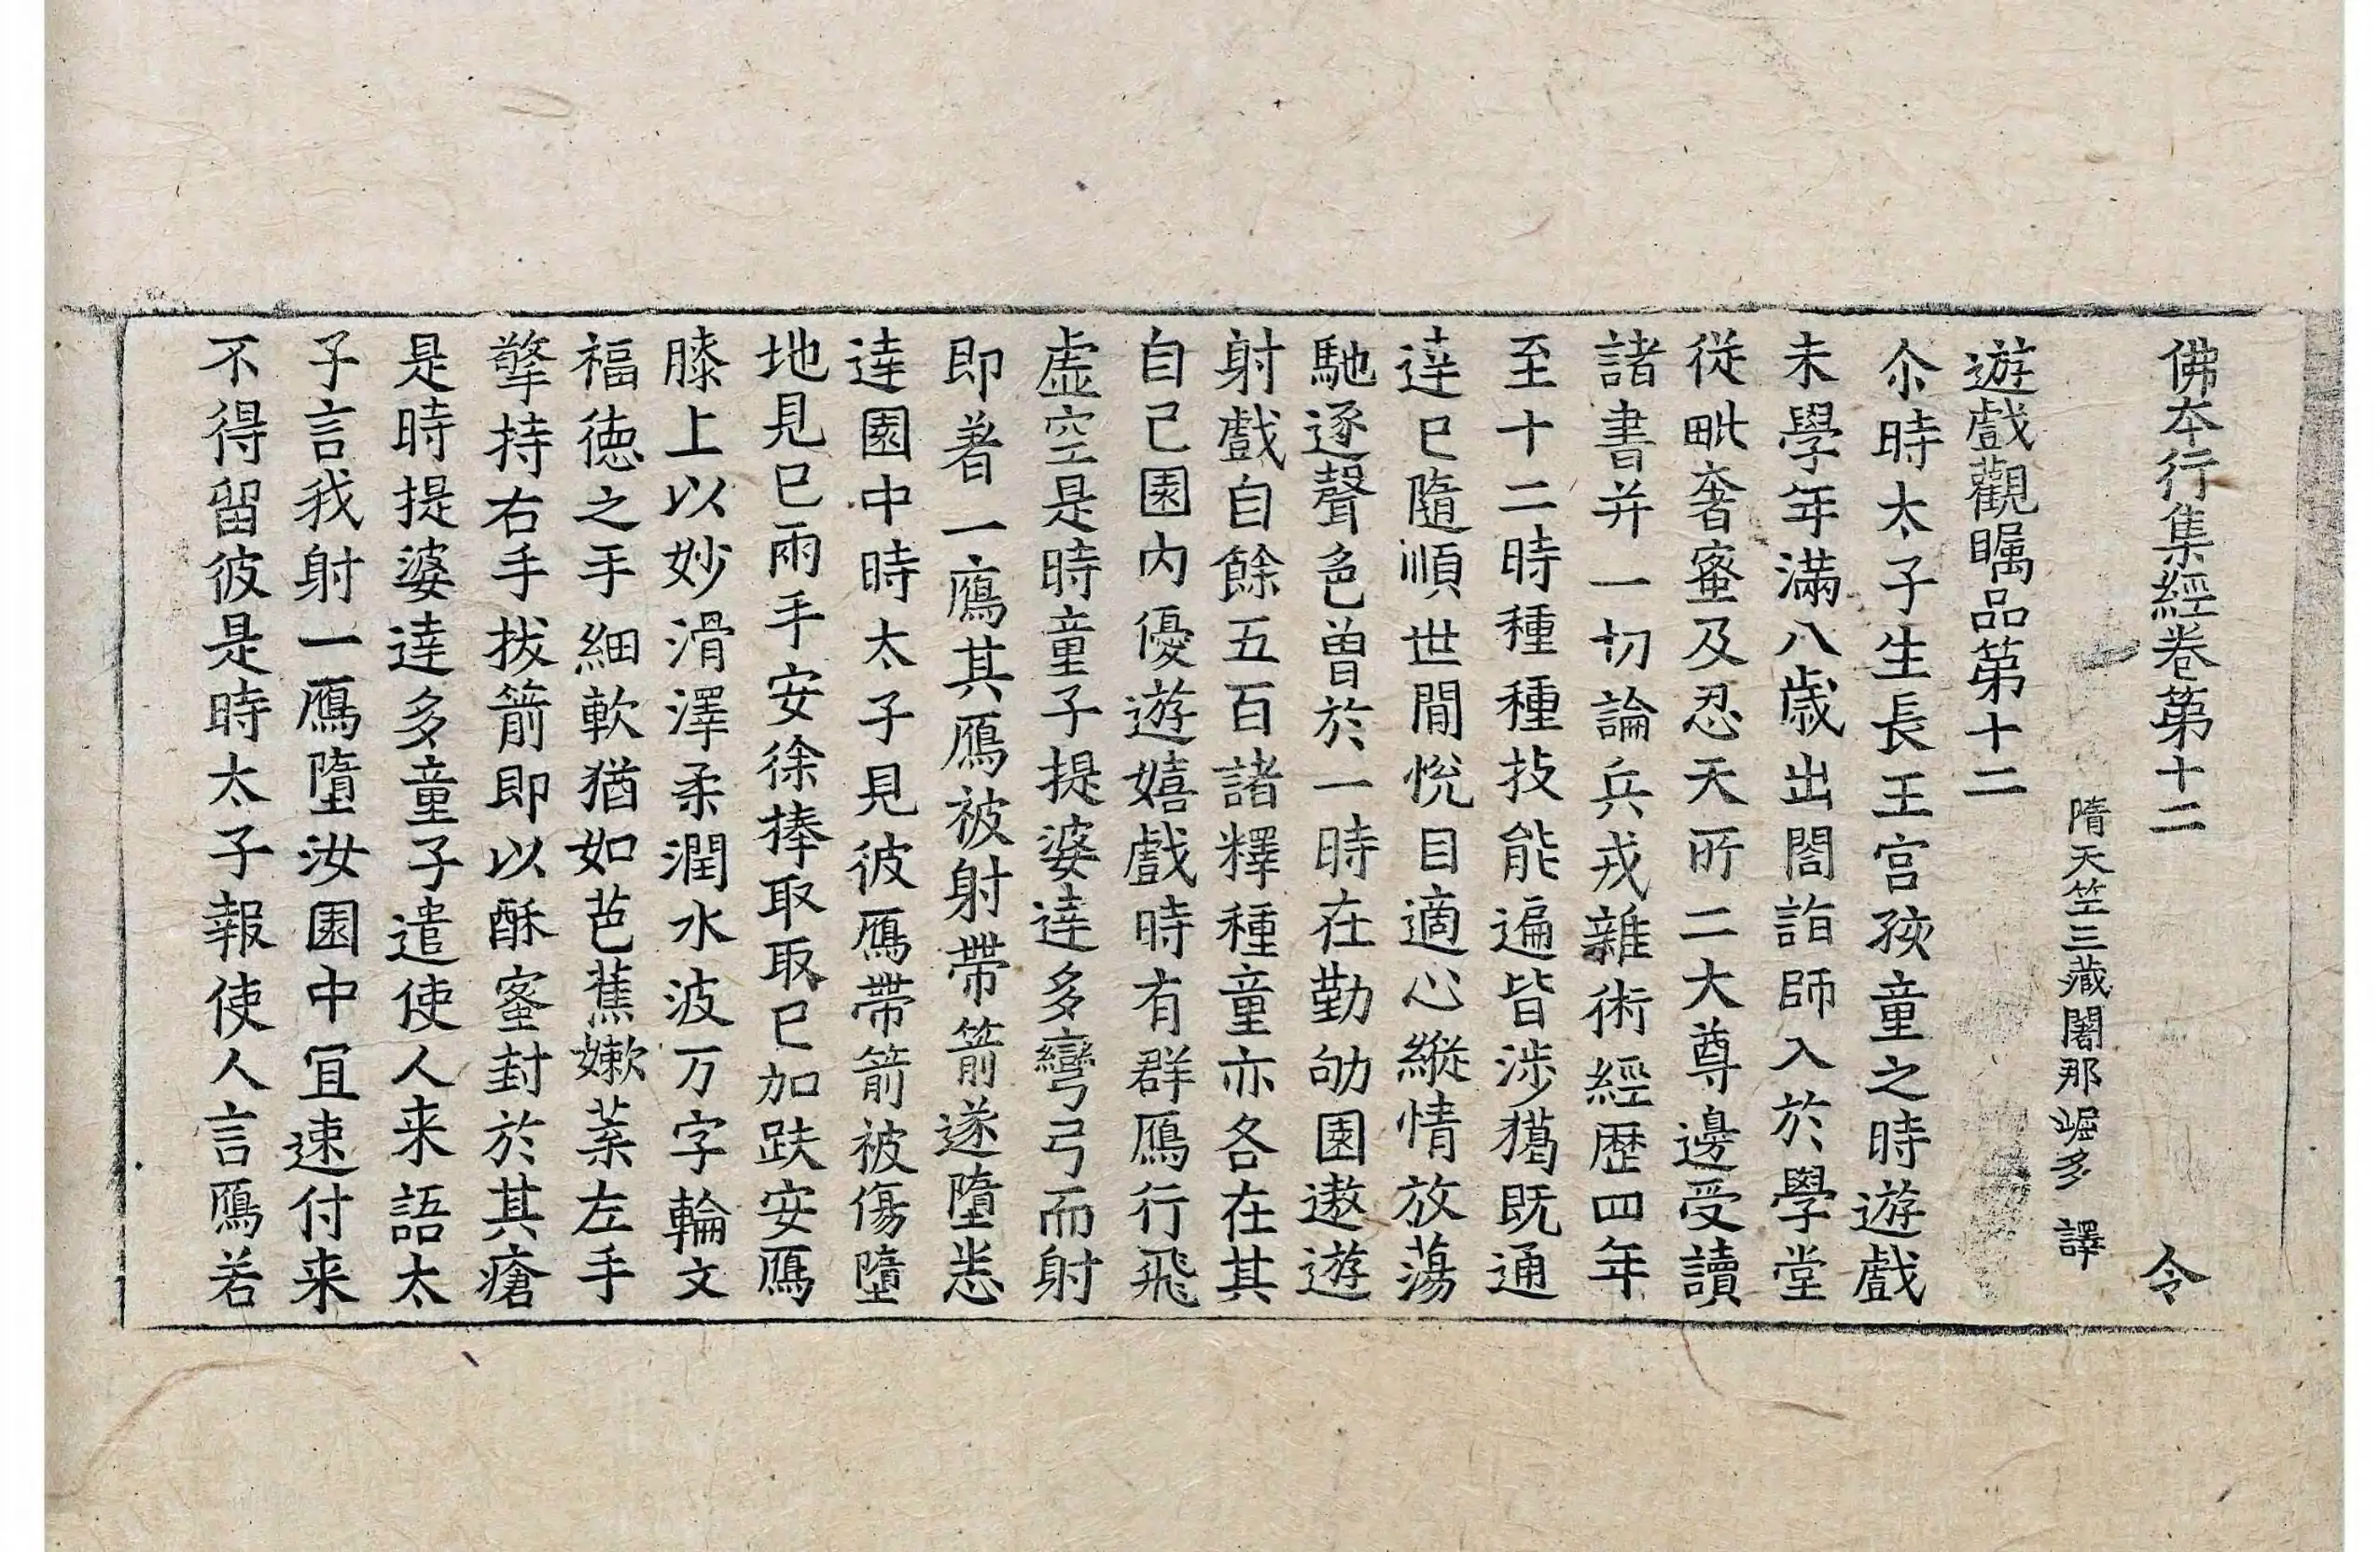 佛本行集經卷第十二 令
隋天竺三藏闍那崛多 譯
遊戲觀矚品第十二
尒時太子生長王宮孩童之時遊戲
未學年滿八歲出閤詣師入於學堂
從毗奢蜜及忍天所二大尊邊受讀
諸書并一切論兵戎雜術經歷四年
至十二時種種技能遍皆涉獵既通
達已隨順世間悅目適心縱情放蕩
馳逐聲色曾於一時在勤劬園遨遊
射戲自餘五百諸釋種童亦各在其
自己園內優遊嬉戲時有群鴈行飛
虛空是時童子提婆達多彎弓而射
即著一鴈其鴈被射帶箭遂墮悉
達園中時太子見彼鴈帶箭被傷墮
地見已兩手安徐捧取取已加趺安鴈
膝上以妙滑澤柔潤水波万字輪文
福德之手細軟猶如芭蕉嫰葉左手
擎持右手拔箭即以酥蜜封於其瘡
是時提婆達多童子遣使人来語太
子言我射一鴈墮汝園中冝速付来
不得留彼是時太子報使人言鴈若